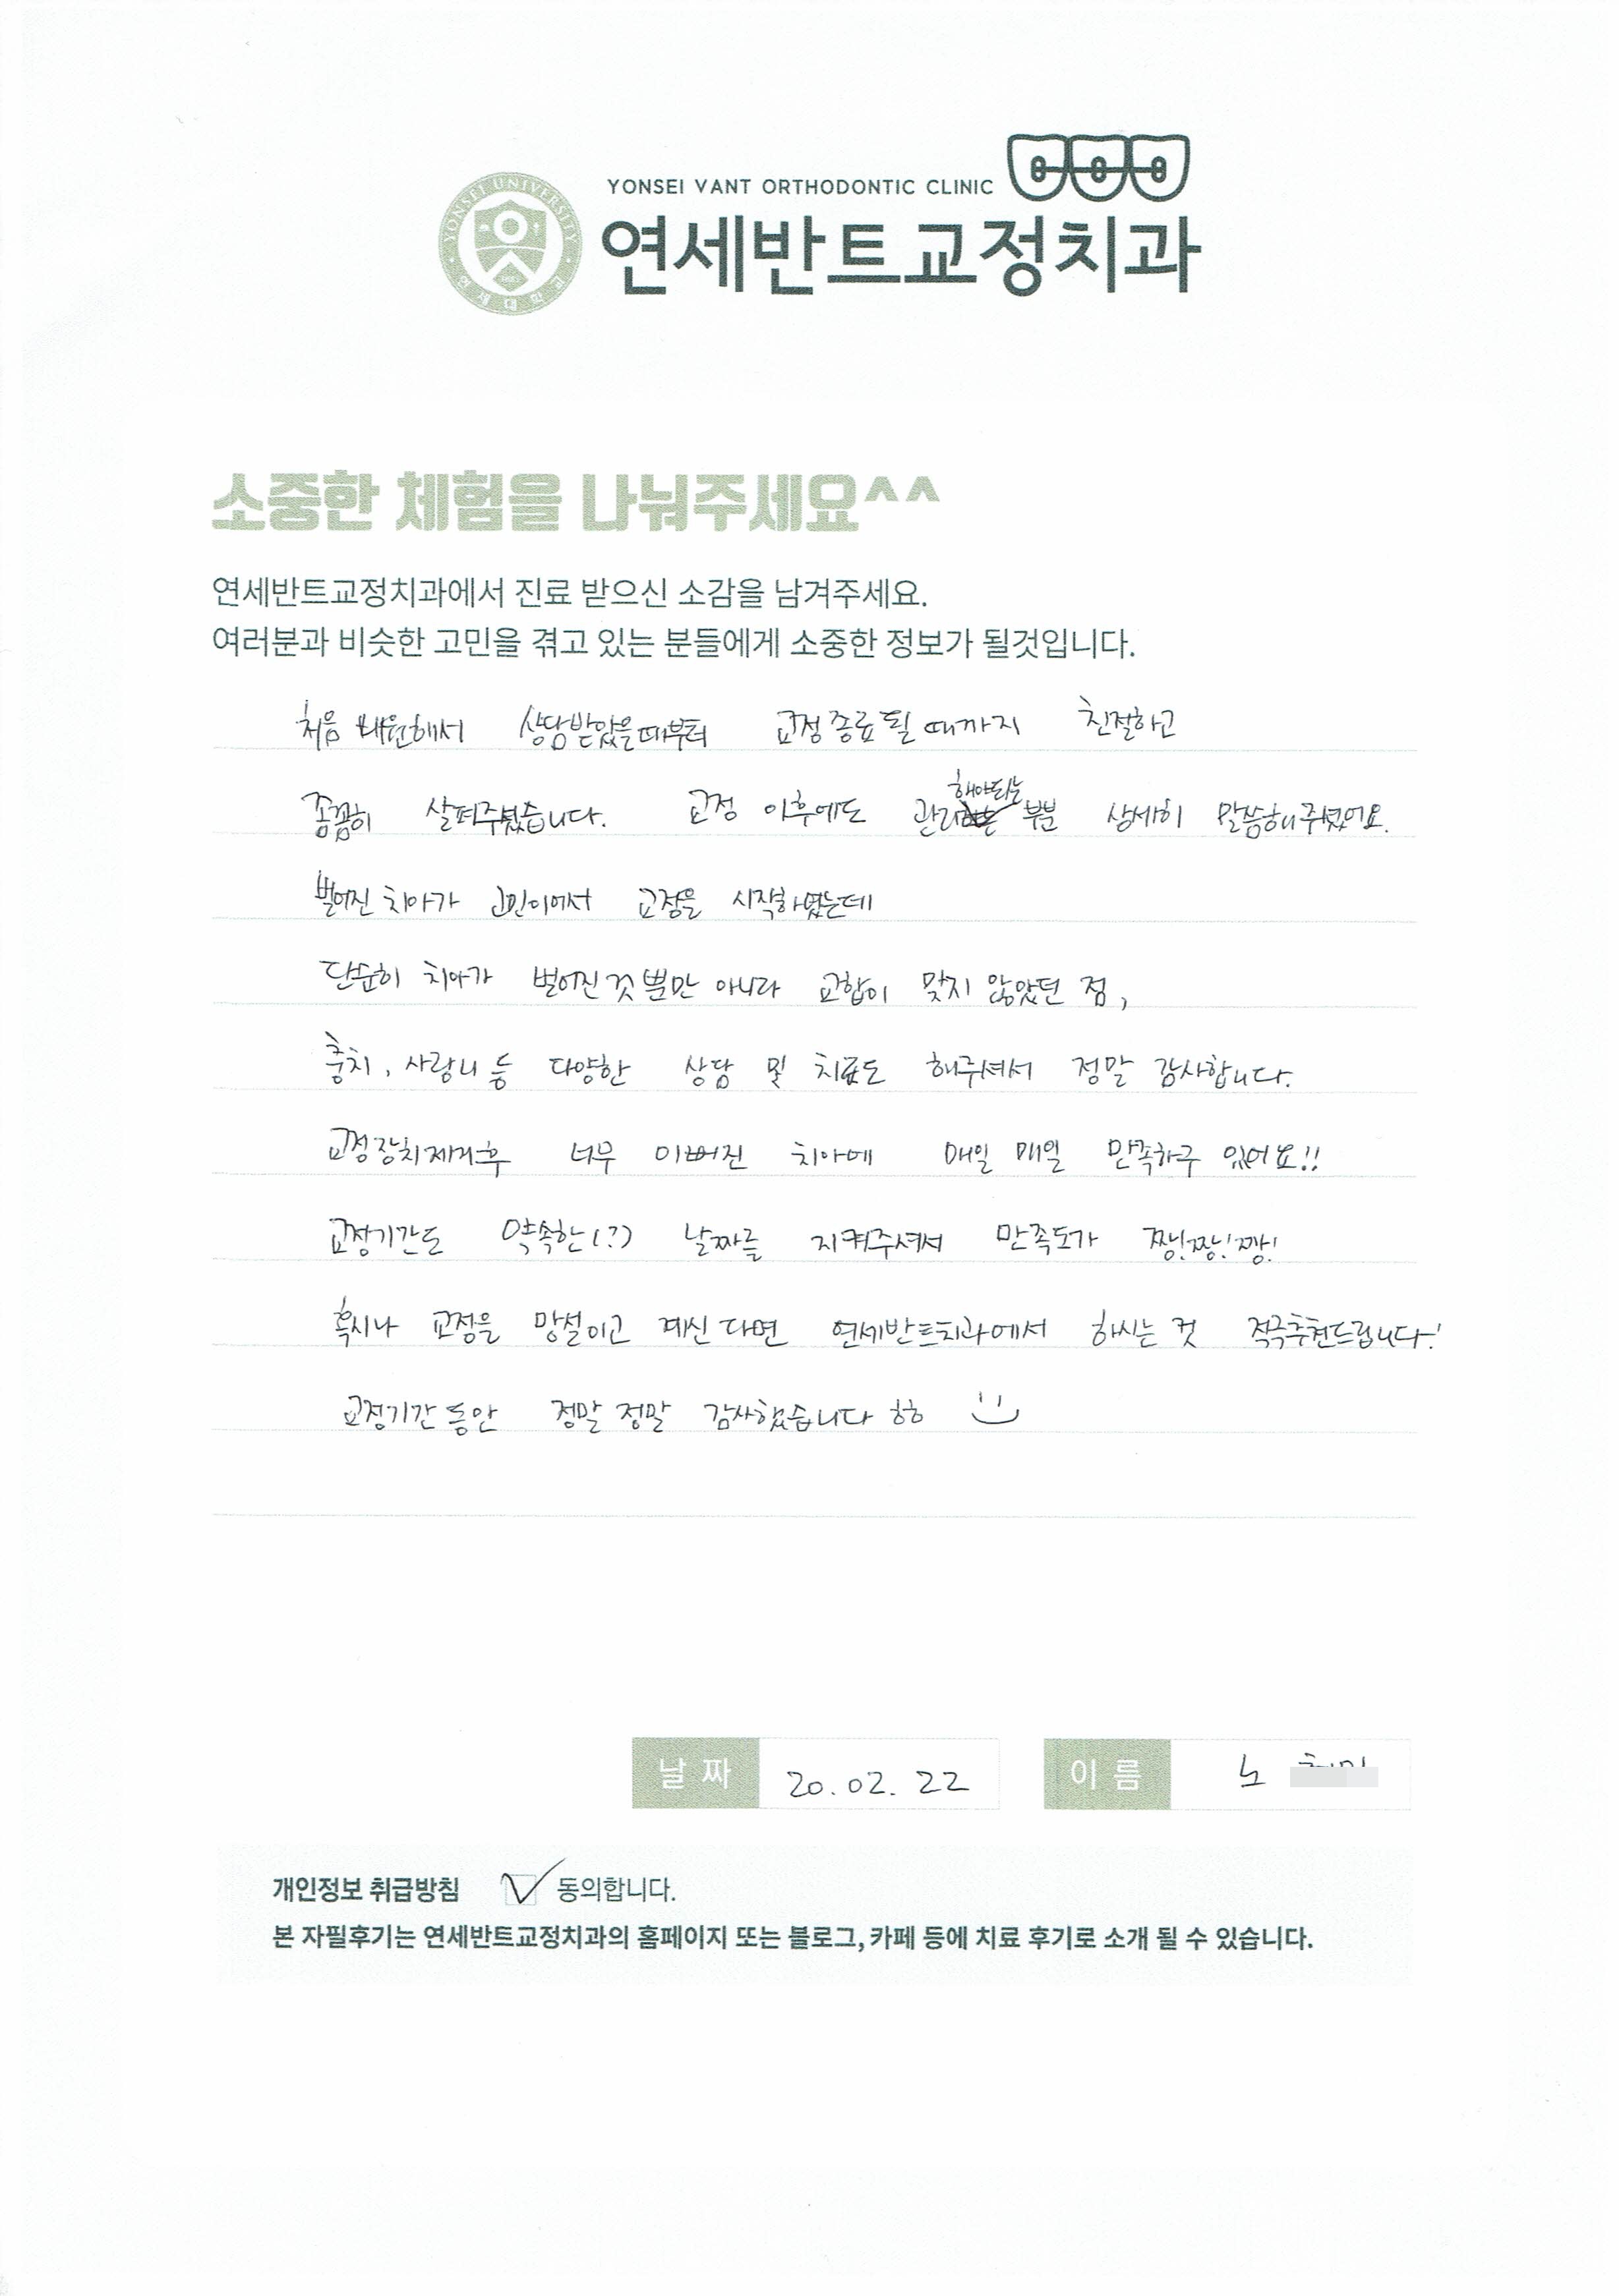 YONSEI VANT ORTHODONTIC CLINIC
YONSEI UNIVERSITY
연세대학교
연세반트교정치과
소중한 체험을 나눠주세요^^
연세반트교정치과에서 진료 받으신 소감을 남겨주세요.
여러분과 비슷한 고민을 겪고 있는 분들에게 소중한 정보가 될것입니다.
처음 내원해서 상담받았을때부터 교정 종료 될 때까지 친절하고
꼼꼼히 살펴주셨습니다. 교정 이후에도 관리해야되는 부분 상세히 말씀해주셨어요.
벌어진 치아가 고민이어서 교정을 시작하였는데
단순히 치아가 벌어진 것 뿐만 아니라 교합이 맞지 않았던 점,
충치, 사랑니 등 다양한 상담 및 치료도 해주셔서 정말 감사합니다.
교정장치제거후 너무 이뻐진 치아에 매일 매일 만족하구 있어요!!
교정기간도 약속한(?) 날짜를 지켜주셔서 만족도가 짱!짱!짱!
혹시나 교정을 망설이고 계신다면 연세반트치과에서 하시는 것 적극추천드립니다!
교정기간 동안 정말 정말 감사했습니다 ㅎㅎ
날짜 20.02.22 이름 노
개인정보 취급방침 동의합니다.
본 자필후기는 연세반트교정치과의 홈페이지 또는 블로그, 카페 등에 치료 후기로 소개 될 수 있습니다.